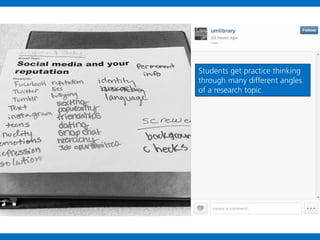 Social media and your
reputation
Facebook
Twitter
Tumblr
Text
instagram
teens
nudity
emotions
depression
solution
reputation
sex
bullying
sexting
popularity
friendships
dating
snap chat
hierarchy
Job opportunities
identity
language
Permanent
info
screwed
background
checks
umlibrary
Follow
Students get practice thinking
through many different angles
of a research topic
Leave a comment...